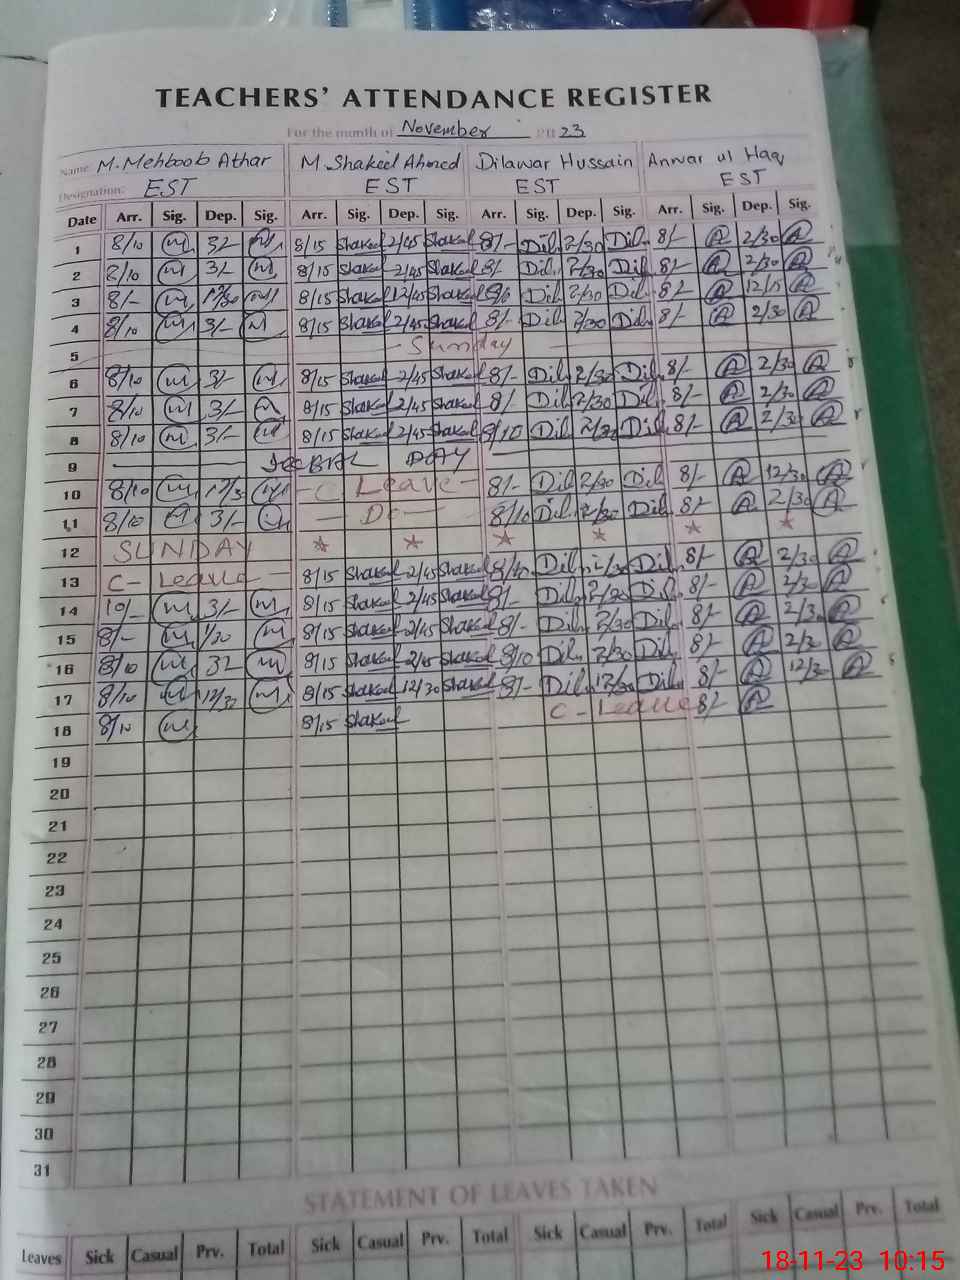 TEACHERS' ATTENDANCE REGISTER
For the month of November 23
Name: M. Mehboob Athar M. Shakeel Ahmed Dilawar Hussain Anwar ul Haq
Designation: EST EST EST EST
Date Arr. Sig. Dep. Sig. Arr. Sig. Dep. Sig. Arr. Sig. Dep. Sig. Arr. Sig. Dep. Sig.
1 8/10 m 3/- m 8/15 Shakeel 2/45 Shakeel 8/- Dil 2/30 Dil 8/- A 2/30 A
2 8/10 m 3/- m 8/15 Shakeel 2/45 Shakeel 8/- Dil 2/30 Dil 8/- A 2/30 A
3 8/- m 12/30 m 8/15 Shakeel 12/45 Shakeel Dil 2/30 Dil 8/- A 12/15 A
4 8/10 m 3/- m 8/15 Shakeel 2/45 Shakeel 8/- Dil 2/30 Dil 8/- A 2/30 A
5 Sunday
6 8/10 m 3/- m 8/15 Shakeel 2/45 Shakeel 8/- Dil 2/30 Dil 8/- A 2/30 A
7 8/10 m 3/- m 8/15 Shakeel 2/45 Shakeel 8/- Dil 2/30 Dil 8/- A 2/30 A
8 8/10 m 3/- m 8/15 Shakeel 2/45 Shakeel 8/10 Dil 2/30 Dil 8/- A 2/30 A
9 IQBAL DAY
10 8/10 m 12/30 m C Leave 8/- Dil 2/30 Dil 8/- A 12/30 A
11 8/10 3/- Do 8/10 Dil 2/30 Dil 8/- A 2/30 A
12 SUNDAY
13 C - Leave 8/15 Shakeel 2/45 Shakeel 8/10 Dil 2/30 Dil 8/- A 2/30 A
14 10/- m 3/- m 8/15 Shakeel 2/45 Shakeel 8/- Dil 2/30 Dil 8/- A 2/30 A
15 8/- m 1/30 m 8/15 Shakeel 2/45 Shakeel 8/- Dil 2/30 Dil 8/- A 2/30 A
16 8/10 m 3/- m 8/15 Shakeel 2/45 Shakeel 8/10 Dil 2/30 Dil 8/- A 2/30 A
17 8/10 m 12/30 m 8/15 Shakeel 12/30 Shakeel 8/- Dil 12/30 Dil 8/- A 12/30 A
18 8/10 m 8/15 Shakeel C - Leave 8/- A
19
20
21
22
23
24
25
26
27
28
29
30
31
STATEMENT OF LEAVES TAKEN
Leaves Sick Casual Prv. Total Sick Casual Prv. Total Sick Casual Prv. Total Sick Casual Prv. Total
18-11-23 10:15